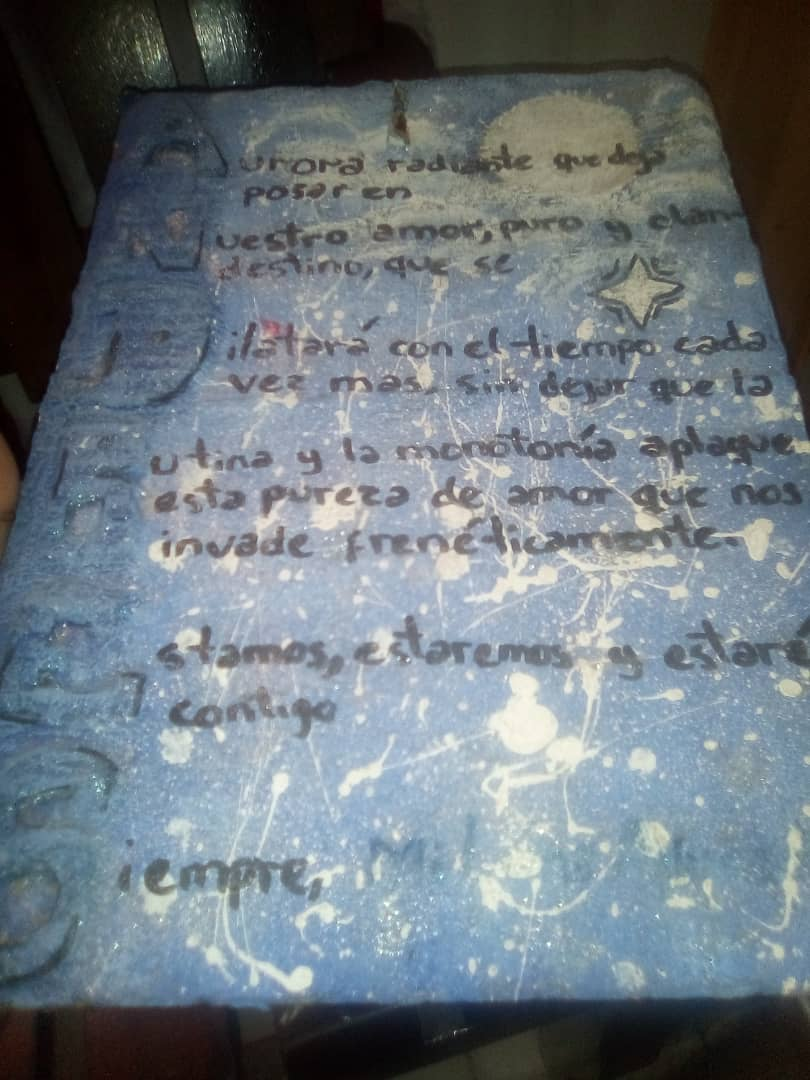 Aurora radiante que deja
posar en
Nuestro amor, puro y clan-
destino, que se
Dilatará con el tiempo cada
vez mas, sin dejar que la
Rutina y la monotonía aplaque
esta pureza de amor que nos
invade frenéticamente.
Estamos, estaremos y estaré
contigo
Siempre,